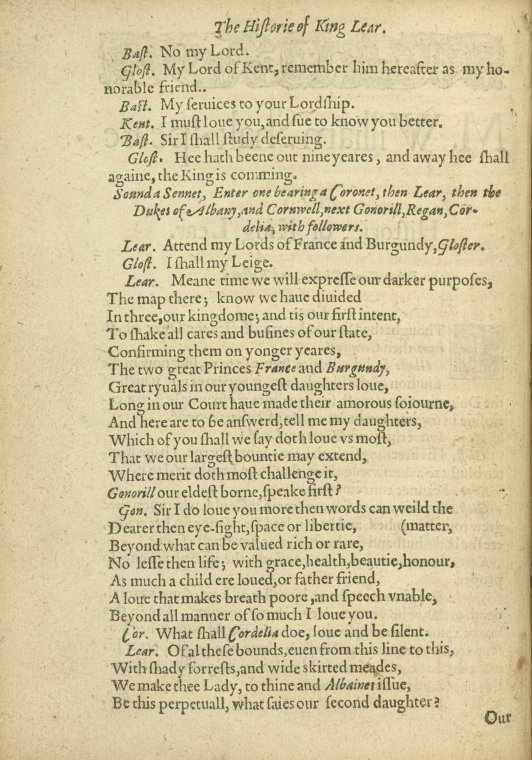 The Historie of King Lear.
Bast. No my Lord.
Glost. My Lord of Kent, remember him hereafter as my ho-
norable friend..
Bast. My seruices to your Lordship.
Kent. I must loue you, and sue to know you better.
Bast. Sir I shall study deseruing.
Glost. Hee hath beene out nine yeares, and away hee shall
againe, the King is comming.
Sound a Sennet, Enter one bearing a Coronet, then Lear, then the
Dukes of Albany, and Cornwell, next Gonorill, Regan, Cor-
delia, with followers.
Lear. Attend my Lords of France and Burgundy, Gloster.
Glost. I shall my Leige.
Lear. Meane time we will expresse our darker purposes,
The map there; know we haue diuided
In three, our kingdome; and tis our first intent,
To shake all cares and busines of our state,
Confirming them on yonger yeares,
The two great Princes France and Burgundy,
Great ryuals in our youngest daughters loue,
Long in our Court haue made their amorous soiourne,
And here are to be answerd, tell me my daughters,
Which of you shall we say doth loue vs most,
That we our largest bountie may extend,
Where merit doth most challenge it,
Gonorill our eldest borne, speake first?
Gon. Sir I do loue you more then words can weild the
Dearer then eye-sight, space or libertie, (matter,
Beyond what can be valued rich or rare,
No lesse then life; with grace, health, beautie, honour,
As much a child ere loued, or father friend,
A loue that makes breath poore, and speech vnable,
Beyond all manner of so much I loue you.
Cor. What shall Cordelia doe, loue and be silent.
Lear. Of al these bounds, euen from this line to this,
With shady forrests, and wide skirted meades,
We make thee Lady, to thine and Albaines issue,
Be this perpetuall, what saies our second daughter?
Our